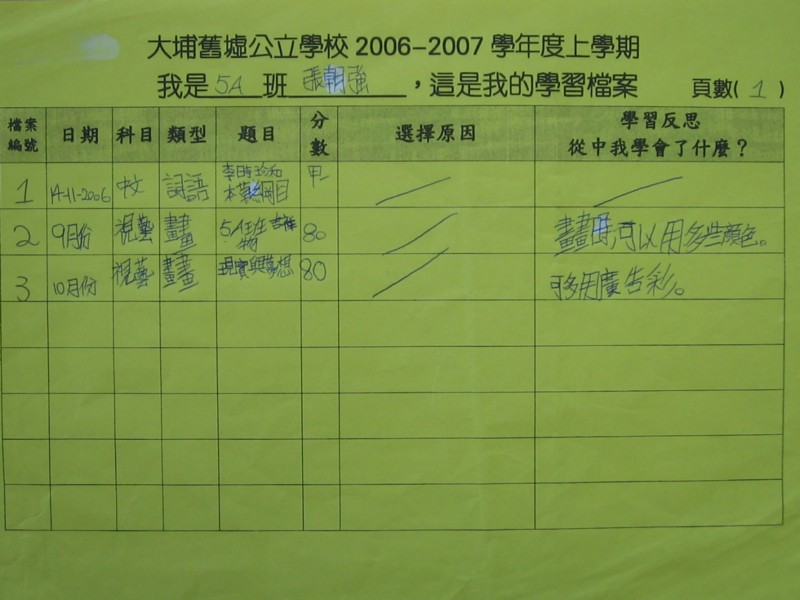 大埔舊墟公立學校 2006-2007 學年度上學期
我是 5A 班 張朝強 ，這是我的學習檔案 頁數( 1 )
檔案編號 日期 科目 類型 題目 分數 選擇原因 學習反思 從中我學會了什麼？
1 14-11-2006 中文 詞語 李時珍和本草綱目 甲-
2 9月份 視藝 畫畫 5A班吉祥物 80 畫畫時,可以用多些顏色。
3 10月份 視藝 畫畫 現實與夢想 80 可多用廣告彩。